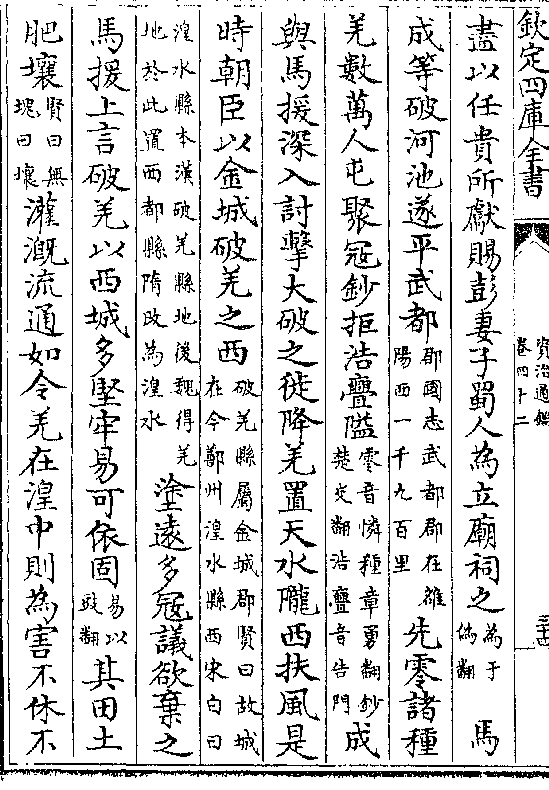 欽定四庫全書
資治通鑑
卷四十二
三十四
盡以任貴所獻賜彭妻子蜀人為立廟祠之為于偽翻 馬
成等破河池遂平武都郡國志武都郡在雒陽西一千九百里先零諸種
羌數萬人屯聚寇鈔拒浩亹隘零音憐種章勇翻鈔楚交翻浩亹音告門成
與馬援深入討擊大破之徙降羌置天水隴西扶風是
時朝臣以金城破羌之西破羌縣屬金城郡賢曰故城在今鄯州湟水縣西宋白曰
湟水縣本漢破羌縣地後魏得羌地於此置西都縣隋改為湟水塗遠多寇議欲棄之
馬援上言破羌以西城多堅牢易可依固易以豉翻其田土
肥壤賢曰無塊曰壤灌溉流通如令羌在湟中則為害不休不